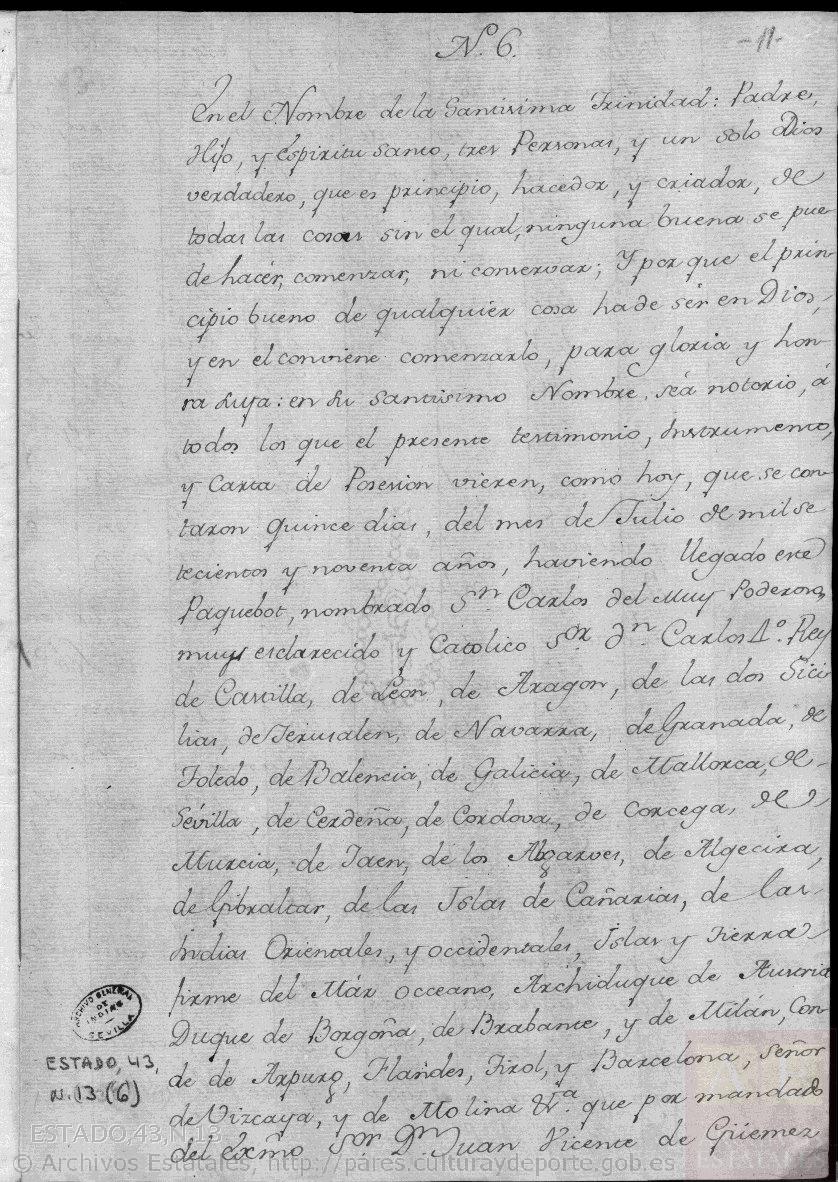 N.º 6.
-11-
En el Nombre de la Santisima Trinidad: Padre,
Hijo, y Espiritu Santo, tres Personas, y un solo Dios
verdadero, que es principio, hacedor, y criador, de
todas las cosas sin el qual, ninguna buena se pue
de hacér, comenzar, ni conservar; Y por que el prin
cipio bueno de qualquiér cosa ha de sér en Dios,
y en el conviene comenzarlo, para gloria y hon-
ra suya: en su Santisimo Nombre, seá notorio, á
todos los que el presente testimonio, Instrumento,
y Carta de Posesion vieren, como hoy, que se con-
taron quince dias, del mes de Julio de mil se
tecientos y noventa años, haviendo llegado este
Paquebot, nombrado Sn. Carlos del muy Poderoso,
muy esclarecido y Catolico Sor. Dn. Carlos 4.º Rey
de Castilla, de Leon, de Aragon, de las dos Sici
lias, de Jerusalen, de Navarra, de Granada, de
Toledo, de Balencia, de Galicia, de Mallorca, de
Sévilla, de Cerdeña, de Cordova, de Corcega, de
Murcia, de Jaen, de los Algarves, de Algecira,
de Gibraltar, de las Islas de Cañarias, de las
Indias Orientales, y occidentales, Islas y Tierra
firme del Már occeano, Archiduque de Austria
Duque de Borgoña, de Brabante, y de Milán, Con-
de de Aspurg, Flandes, Tirol, y Barcelona, Señor
de Vizcaya, y de Molina &.a que por mandado
del Exmo Sor. Dn. Juan Vicente de Güemez
ARCHIVO GENERAL
DE
INDIAS
SEVILLA
ESTADO, 43,
N.13 (6)
ESTADO,43,N.13
© Archivos Estatales, http://pares.culturaydeporte.gob.es